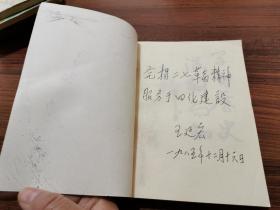 亮相二七革命精神
服务于四化建設
王廷宏
一九八五年十二月十六日